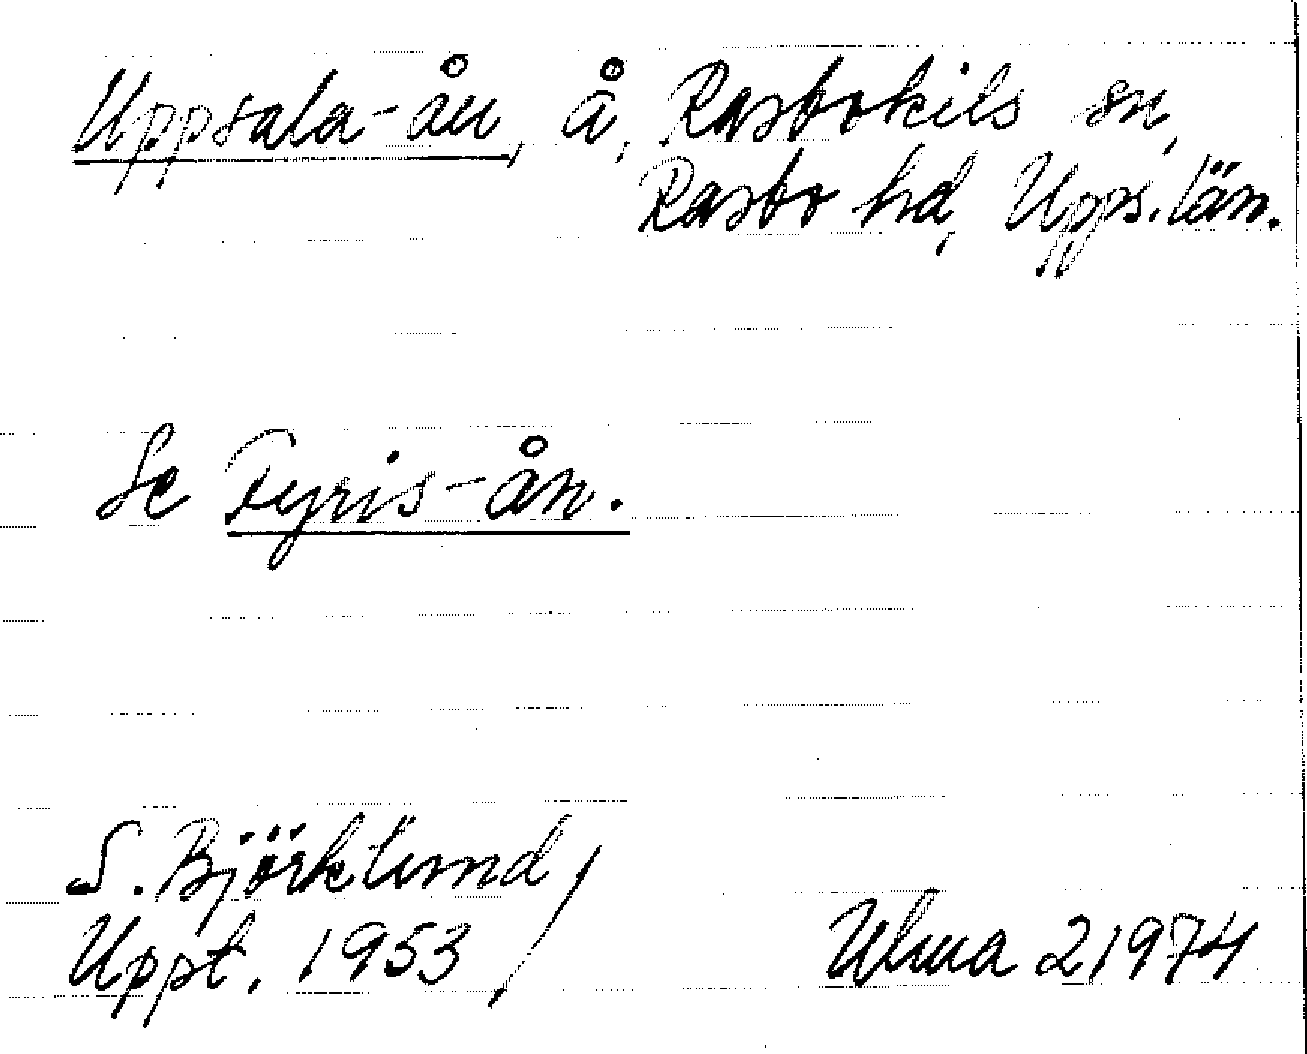 Uppsala-ån, å, Rasbokils sn,
Rasbo hd, Upps. län.
Se Fyris-ån.
S. Björklund
Uppt. 1953
Ulma 21974